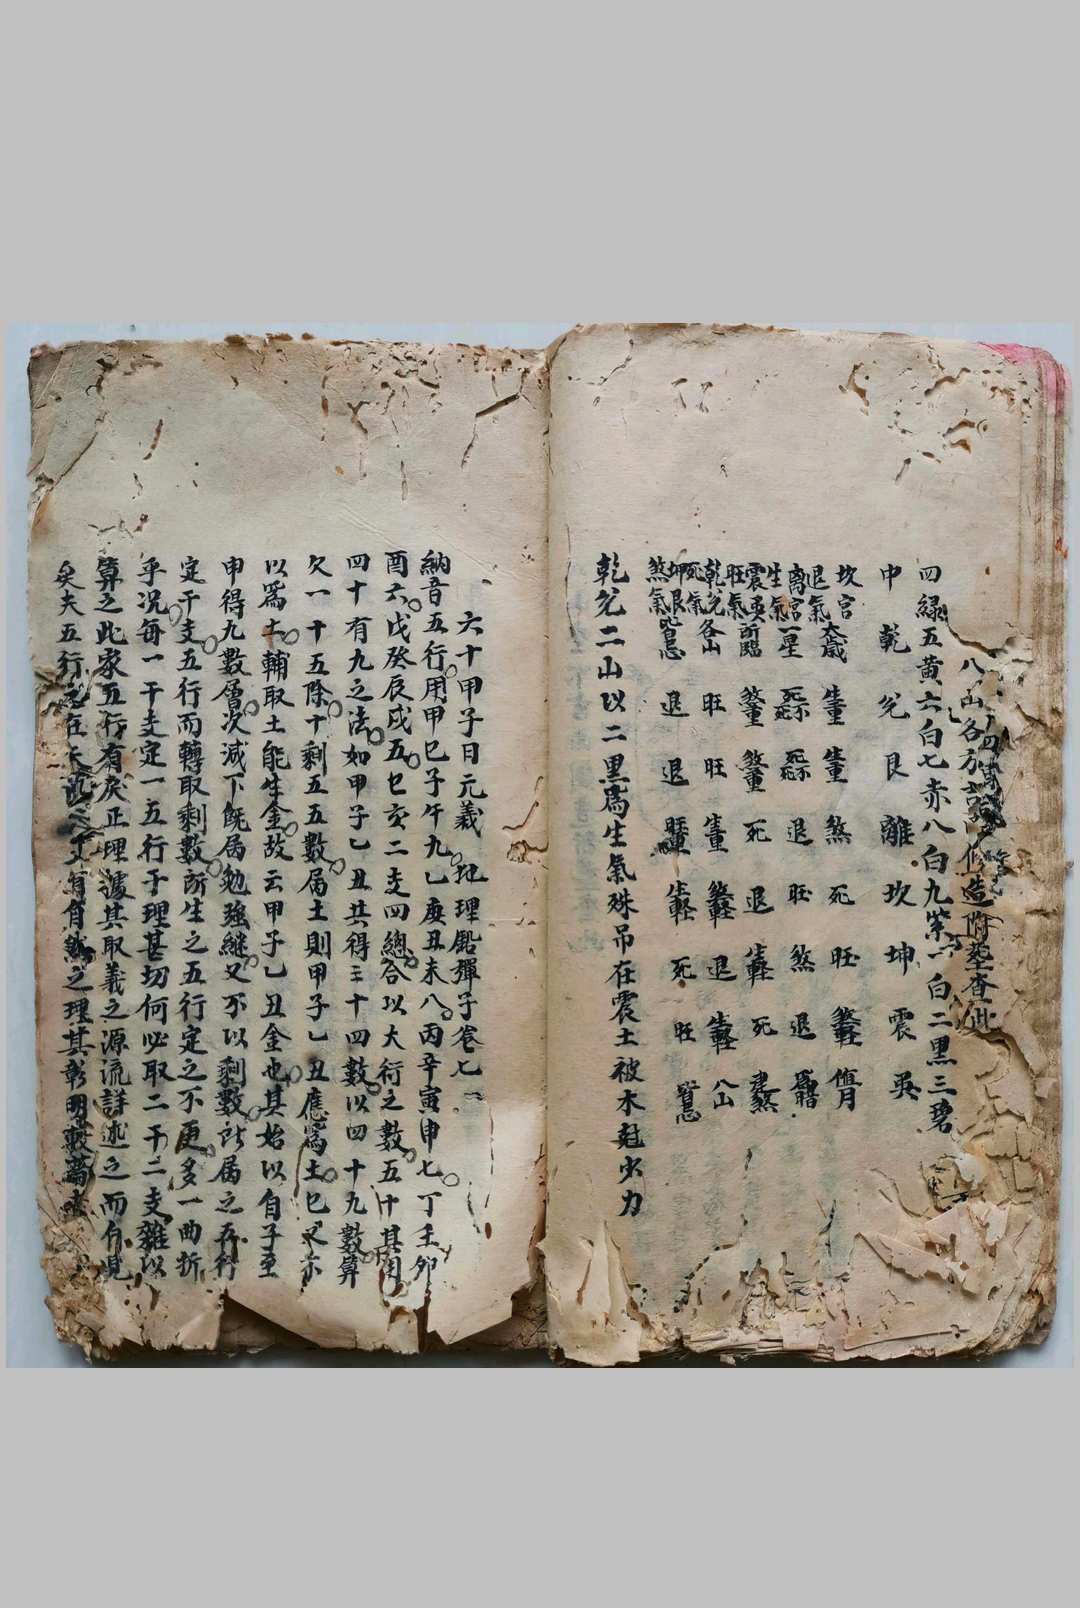 八山各方 修造附塟查此
四綠五黃六白七赤八白九紫一白二黑三碧
中乾兌艮離坎坤震巽
坎宮
退氣 太歲 生重 生重 煞 死 旺 煞輕 值月
离宮
生氣 一星 退 旺 煞 退
震巽
旺氣 所臨 煞重 煞重 死 退 生輕 死
乾兌
死氣 各山 旺 旺 生重 煞輕 退 生輕 八山
坤艮
煞氣 退 退 旺重 生輕 死 旺
乾兌二山以二黑為生氣殊吊在震土被木尅少力
六十甲子日元義 地理鉛彈子卷七
納音五行用甲己子午九乙庚丑未八丙辛寅申七丁壬卯
酉六戊癸辰戌五巳亥二支四總合以大衍之數五十其用
四十有九之法如甲子乙丑共得三十四數以四十九數算
欠一十五除十剩五五數屬土則甲子乙丑應為土巳又示
以為土輔取土能生金故云甲子乙丑金也其始以自子至
申得九數層次減下既屬勉強継又不以剩數所屬之五行
定干支五行而轉取剩數所生之五行定之不更多一曲折
乎况每一干支定一五行于理甚切何必取二干二支雜以
算之此家五行有戾正理據其取義之源流詳述之而自見
矣夫五行 在天 之文有自然之理其彰明較著